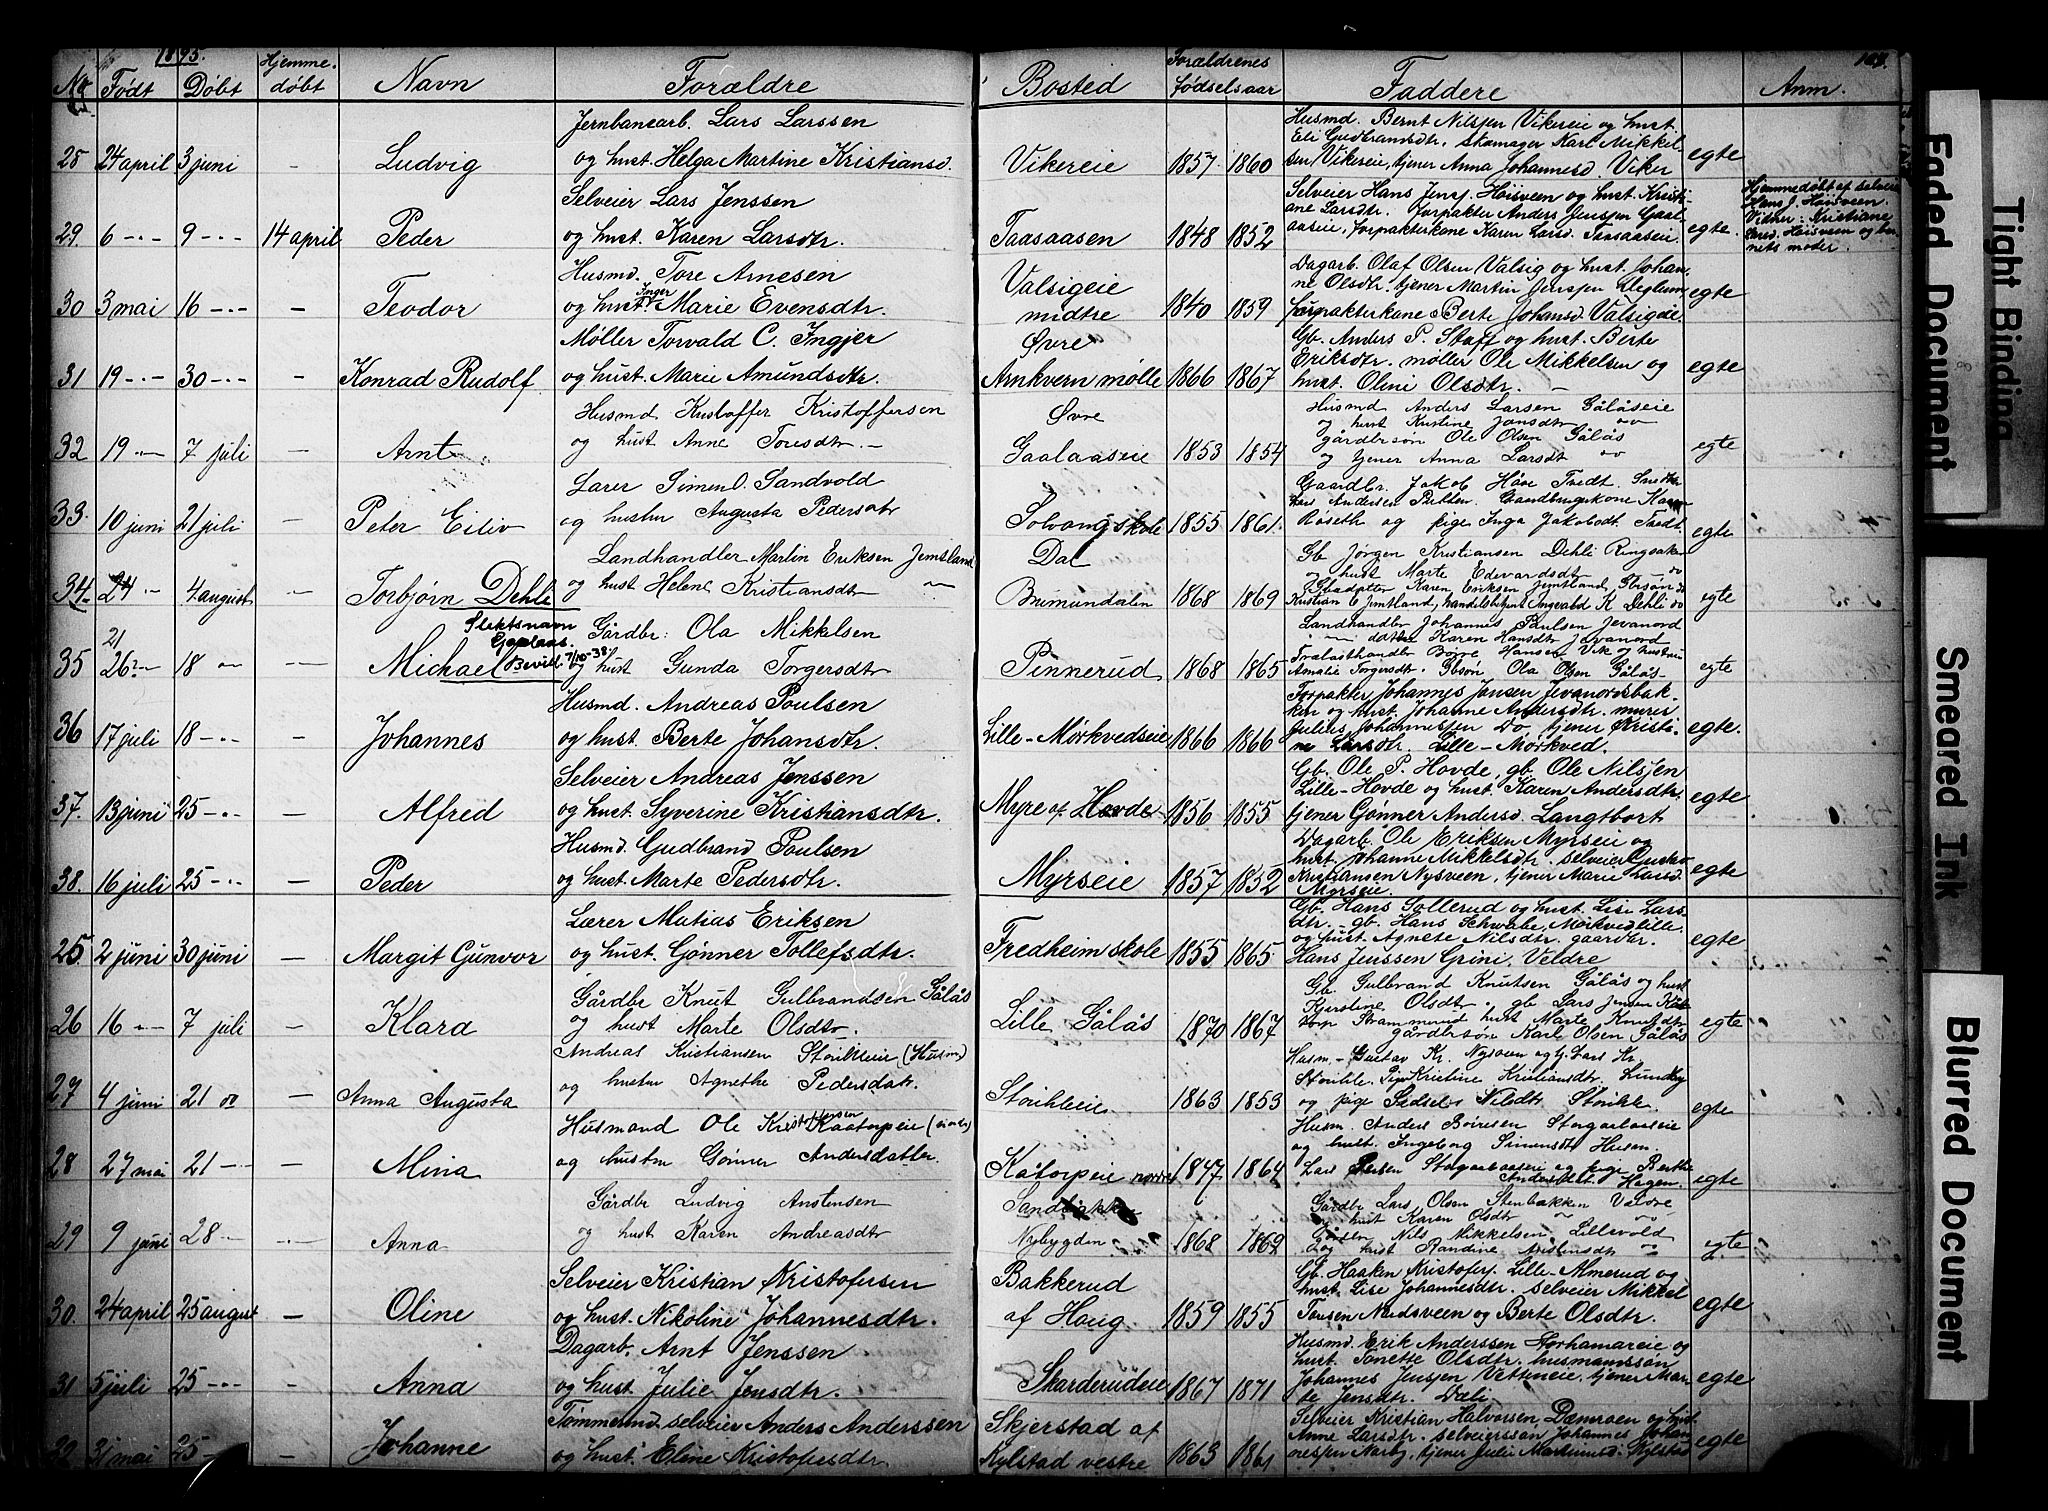 1895.
168.
No Født Døbt Hjemme-døbt Navn Forældre Bosted Forældrenes fødselsaar Faddere Anm.
Jernbanearb. Lars Larssen
og hust. Helga Martine Kristiansd.
28 24 april 3 juni — Ludvig
Vikereie 1857 1860
Husmd. Bernt Nilssen Vikereie og hust.
Eli Gudbransdtr. Skomager Karl Mikkel-
sen Vikereie, tjener Anna Johannesd. Viker
egte
Selveier Lars Jenssen
29. 6 -"- 9 -"- 14 april Peder
og hust. Karen Larsdtr.
Taasaasen 1848 1852
Selveier Hans Jensf. Høisveen og hust. Kristi-
ane Larsdtr. Forpakter Anders Jenssen Gaal-
aaseie, forpakterkone Karen Larsd. Taasaaseie.
egte
Hjemmedøbt af selveier
Hans J. Høisveen.
Vidner: Kristiane
Larsd. Høisveen og bar-
nets moder.
Husmd. Tore Arnesen
30 3 mai 16 -"- — Teodor
og hust. Inger Marie Evensdtr.
Valsigeie
midtre
1840 1859
Dagarb. Olaf Olsen Valsig og hust. Johan-
ne Olsdtr. tjener Martin Jenssen
forpakterkone Berte Johansd. Valsigeie.
egte
Møller Torvald C. Ingjer
31 19 -"- 30 -"- — Konrad Rudolf
og hust. Marie Amundsdtr.
Øvre
Arnkvern mølle 1866 1867
Gb. Anders P. Staff og hust. Berte
Eriksdtr. møller Ole Mikkelsen og
hust. Oline Olsdtr. —
egte
Husmd Kristoffer Kristoffersen
32 19 -"- 7 juli — Arnt
og hust Anne Toresdtr —
Øvre
Gaalaaseie 1853 1854
Husmd Anders Larsen Gålåseie
og hust Kristine Jonsdtr
gårdbrsøn Ole Olsen Gålås
og tjener Anna Larsdt
egte
Lærer Simen O. Sandvold
33. 10 juni 21 juli — Peter Eiliv
og hustru Augusta Pedersdtr
Solvang skole 1855 1861.
Gaardbr. Jakob Hove Tredt.
Gaardbrugerkone Karen
Røseth og pige Inga Jakobsdt. Tredt
egte
Landhandler Martin Eriksen Jemtland
34. 24 -"- 4 august — Torbjørn Dehli
og hust Helene Kristiansdtr
Dal
Brumundalen 1868 1869
Gb Jørgen Kristiansen Dehli Ringsaker
og hust Marte Edevardsdtr
Karen Eriksen Jemtland,
Kristian E Jemtland, handelsbetjent Ingvald K Dehli
egte
Slektsnavn
Gaalaas.
Bevill. 7/10-33
Gårdbr: Ola Mikkelsen
21
35 26 18 Michael
og hust Gunda Torgersdtr
Pinnerud 1868 1865
Landhandler Johannes Paulsen Jevanord
datter Karen Hansdtr Jevanord
Trælasthandler Børre Hansen Vik og hustru
Amalie Torgersdtr. Gbsøn Ola Olsen Gålås
egte
Husmd. Andreas Poulsen
36 17 juli 18 -"- — Johannes
og hust. Berte Johansdtr.
Lille-Mørkvedseie 1866 1866
Forpakter Johannes Jensen Jevanordsbak-
ken og hust. Johanne Andersdtr. murer
Julius Johannessen Do tjener Kristi-
ne Larsdtr. Lille-Mørkved.
egte.
Selveier Andreas Jenssen
37. 13 juni 25 -"- — Alfred
og hust. Syverine Kristiansdtr.
Myre af Hovde 1856 1855
Gb. Ole P. Hovde, gb. Ole Nilssen
Lille-Hovde og hust. Karen Andersdtr.
tjener Gønner Andersd. Langtbort
egte
Husmd. Gudbrand Poulsen
38. 16 juli 25 -"- — Peder
og hust. Marte Pedersdtr.
Myrseie 1857 1852
Dagarb. Ole Eriksen Myrseie og
hust. Johanne Mikkelsdtr. selveier Gustav
Kristiansen Nysveen, tjener Marie Larsd.
Myrseie.
egte
Lærer Matias Eriksen
25. 2 juni 30 juni — Margit Gunvor
og hust. Gønner Tollefsdtr.
Fredheim skole 1855 1865
Gb. Hans Sollerud og hust. Lise Lars-
dtr. gb. Hans Schwabe, Mørkved lille.
og hust. Agnete Nilsdtr. gaardbr.
Hans Jenssen Grini, Veldre
egte
Gårdbr Knut Gulbrandsen Gålås
26 16 -"- 7 juli — Klara
og hust Marte Olsdtr.
Lille Gålås 1870 1867
Gb. Gulbrand Knutsen Gålås og hust
Kjerstine Olsdtr. gb Lars Jensen Kåt-
torp Strømmund hust Marte Knutsdtr
gårdbrsøn Karl Olsen Gålås
egte
Andreas Kristiansen Storihleie (Husm)
27 4 juni 21 — Anna Augusta
og hustru Agnethe Pedersdatr.
Storihleie 1863 1853
Husm. Gustav Kr. Nysveen og Lars Kr.
Storihle. Pige Kristine Kristiansdtr. Lundby
og pige Sidsel Nilsdtr Storihle.
egte
Husmand Ole Kristiansen Kaatorpeie (nordre)
28 27 mai 21 -"- — Mina
og hustru Gønner Andersdatter.
Kåtorpeie nordre 1847 1864
Husm. Anders Børresen Storgaalaaseie
og hust. Ingeborg Simensdtr Husm.
Lars Storgaalaaseie og pige Berthe
Andersdtr. Hagen.
egte
Gårdbr Ludvig Anstensen
29 9 juni 28 -"- Anna
og hust Karen Andreasdtr
Sandbakken
Nybygden 1868 1869
Gårdbr Lars Olsen Stenbakken Veldre
og hust Karen Olsdtr
Nils Mikkelsen Lillevold
og hust Randine Anstensdtr
egte
Selveier Kristian Kristofersen
30. 24 april 25 august — Oline
og hust. Nikoline Johannesdtr.
Bakkerud
af Houg 1859 1855
Gb. Haaken Kristofersf. Lille-Almerud og
hust. Lise Johannesdtr. selveier Mikkel
Tonsen Nordsveen og Berte Olsdtr.
egte
Dagarb. Arnt Jenssen
31 5 juli 25 -"- — Anna
og hust. Julie Jensdtr.
Skarderudeie 1867 1871
Husmd. Erik Anderssen Storhamareie og
hust. Tonette Olsdtr. husmanssøn
Johannes Jenssen Vettineie, tjener Mar-
te Jensdtr. Dæli
egte
Tømmermd selveier Anders Anderssen
32. 31 mai 25 — Johanne
og hust. Eline Kristofersdtr
Skjerstad af
Kylstad vestre 1863 1861
Selveier Kristian Halvorsen Dæmroen og hust.
Anne Larsdtr. selveierssøn Johannes Johan-
nessen tjener Julie Martinusd. Kylstad
egte
Faded Document
Tight Binding
Smeared Ink
Blurred Document